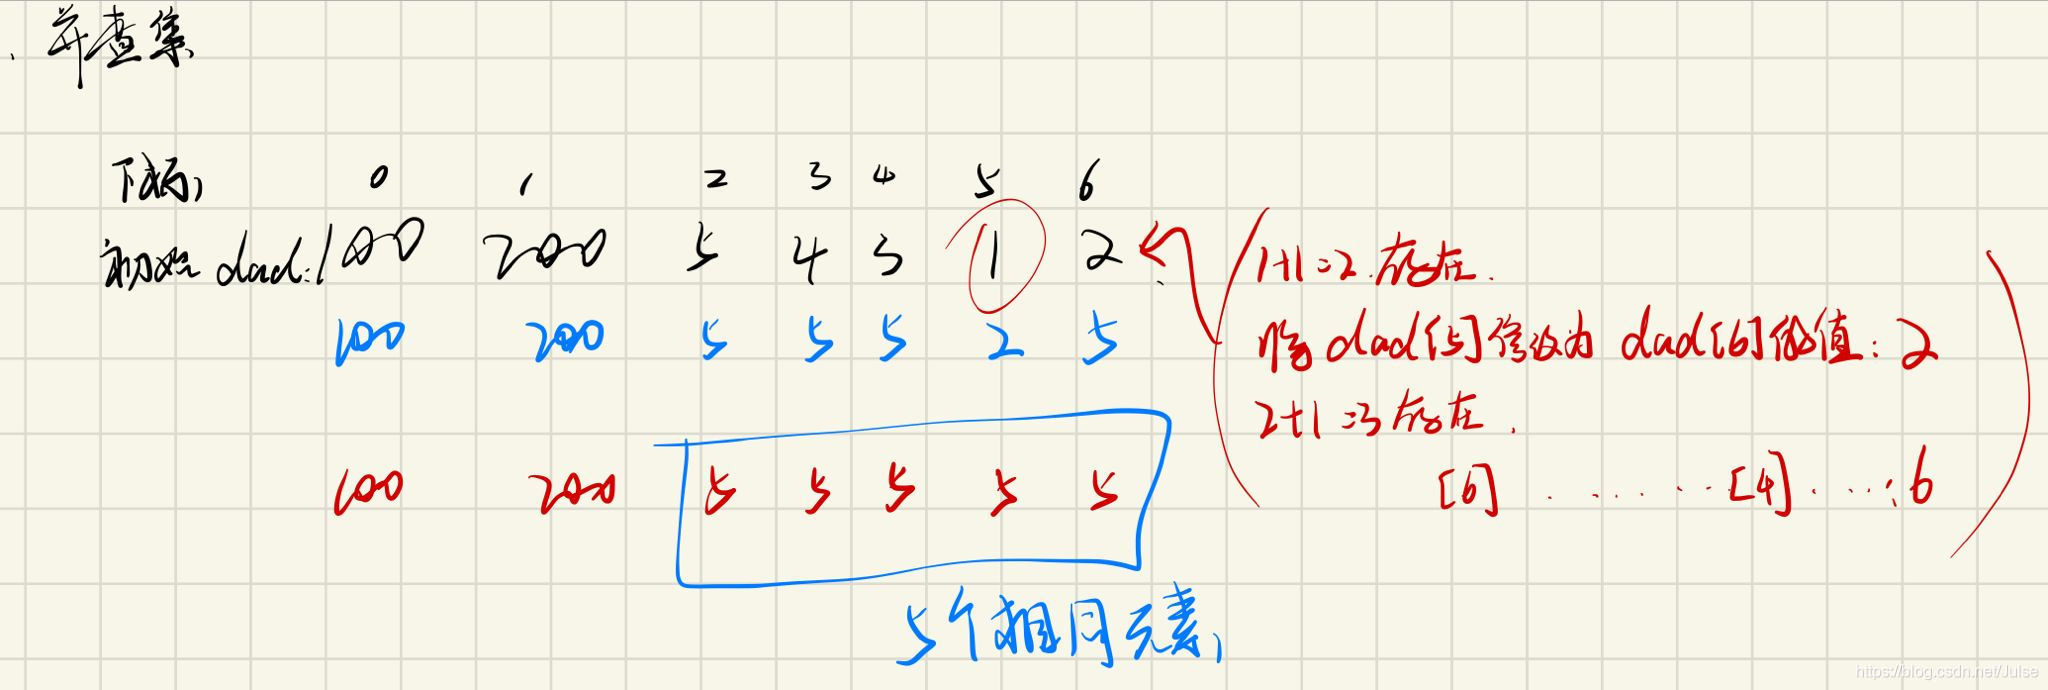 并查集
下标: 0 1 2 3 4 5 6
初始 dad: 100 200 5 4 3 1 2
100 200 5 5 5 2 5
100 200 5 5 5 5 5
5个相同元素
1+1=2.存在.
将 dad[5]修改为 dad[6]的值: 2
2+1=3存在.
[6] ........ [4] ....: 6
https://blog.csdn.net/Julse